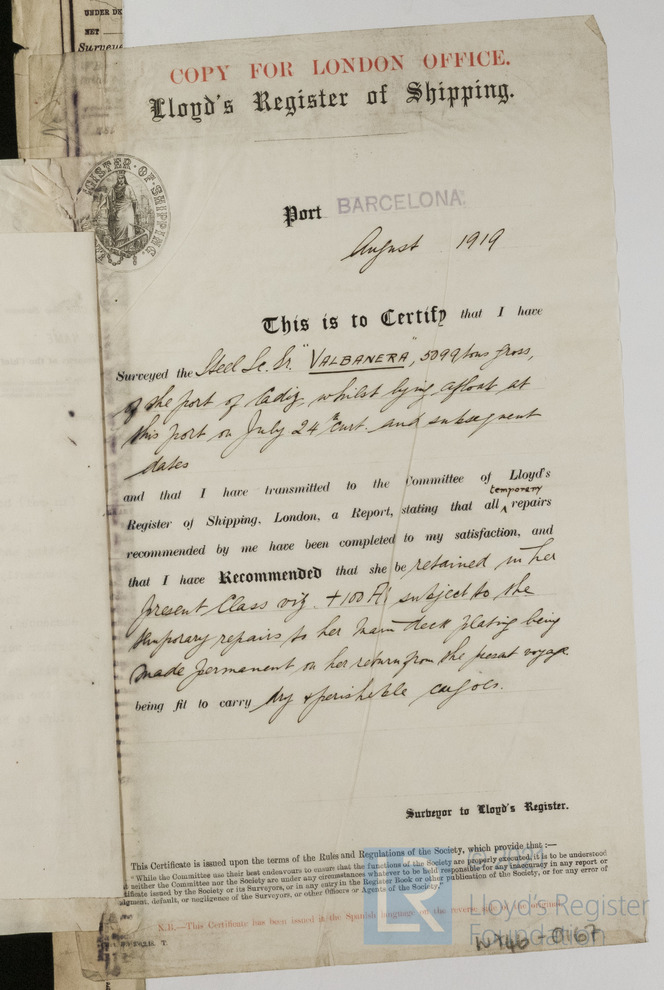 UNDER DK
NET
Surveye
COPY FOR LONDON OFFICE.
Lloyd's Register of Shipping.
REGISTER · OF · SHIPPING
Port BARCELONA.
August 1919
This is to Certify that I have
Surveyed the Steel Sc. Sr. "VALBANERA", 5099 tons gross,
of the port of Cadiz, whilst lying afloat at
this port on July 24th curt. and subsequent
dates
and that I have transmitted to the Committee of Lloyd's
temporary
Register of Shipping, London, a Report, stating that all ^ repairs
recommended by me have been completed to my satisfaction, and
that I have Recommended that she be retained in her
present Class viz. +100A1 subject to the
temporary repairs to her main deck plating being
made permanent on her return from the present voyage.
being fit to carry dry & perishable cargoes.
Surveyor to Lloyd's Register.
This Certificate is issued upon the terms of the Rules and Regulations of the Society, which provide that :—
"While the Committee use their best endeavours to ensure that the functions of the Society are properly executed, it is to be understood
neither the Committee nor the Society are under any circumstances whatever to be held responsible for any inaccuracy in any report or
tificate issued by the Society or its Surveyors, or in any entry in the Register Book or other publication of the Society, or for any error of
dgment, default, or negligence of the Surveyors, or other Officers or Agents of the Society."
N.B.—This Certificate has been issued in the Spanish language on the reverse side of the original
T.
LR
Lloyd's Register
Foundation
W746-0167